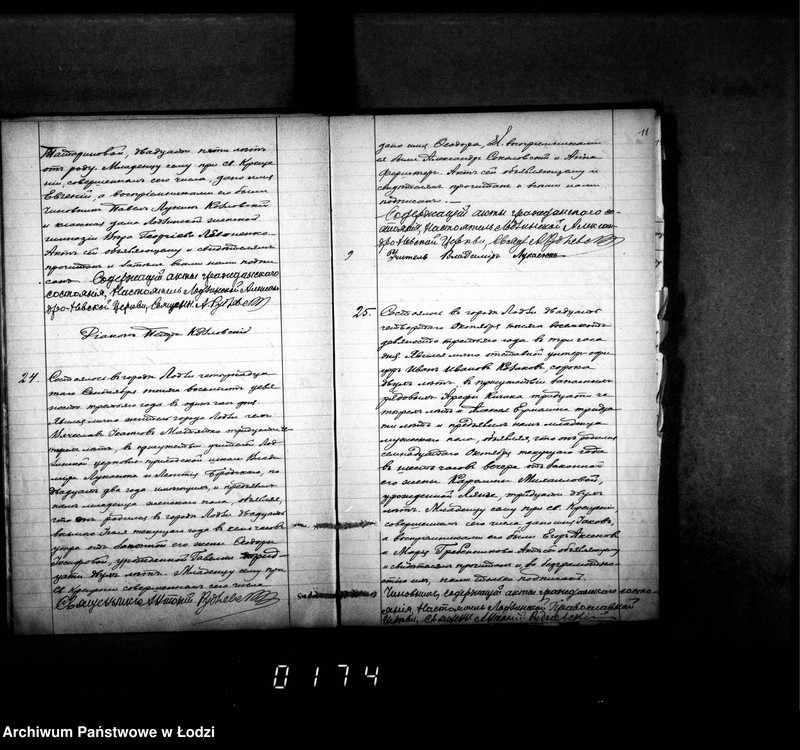 отъ роду. Младенцу сему при св. Креще-
ніи, совершенномъ сего числа, дано имя
Евгеній, а воспріемниками его были
чиновникъ Павелъ Лукинъ
и классная дама Лодзинской женской
гимназіи Вѣра Георгіева
Актъ сей объявляющему и свидѣтелямъ
прочитанъ и затѣмъ нами подпи-
санъ. Содержащій акты гражданскаго
состоянія, Настоятель Лодзинской Алексан-
дро-Невской Церкви, Священ. А. Рудлевскій
Діаконъ Петръ
24. Состоялось въ городѣ Лодзи четырнадца-
таго Сентября тысяча восемьсотъ девя-
носто третьяго года въ одинъ часъ дня.
Явился лично житель города Лодзи чехъ
Вячеславъ тридцати
трехъ лѣтъ, въ присутствіи учителей Лод-
зинской церковно-приходской школы Влади-
міра Лукасюка и Леонтія по
двадцать два года имѣющихъ, и предъявилъ
намъ младенца женскаго пола, объявляя,
что онъ родился въ городѣ Лодзи двадцать
Іюля текущаго года въ часовъ
утра отъ законной его жены Ѳеодоры
Іосифовой, урожденной трид-
цати двухъ лѣтъ. Младенцу сему при
св. Крещеніи совершенномъ сего числа
Священникъ Антоній Рудлевскій
11
дано имя Ѳеодора, а воспріемниками
ея были Александръ Соколовскій и Анна
Актъ сей объявляющему и
свидѣтелямъ прочитанъ и всѣми нами
подписанъ.
Содержащій акты гражданскаго со-
стоянія, Настоятель Лодзинской Алексан-
дро-Невской Церкви, Священ. А. Рудлевскій
Учитель Владиміръ Лукасюкъ
25. Состоялось въ городѣ Лодзи двадцать
четвертаго Октября тысяча восемьсотъ
девяносто третьяго года въ три часа
дня. Явился лично отставной унтеръ-офи-
церъ Иванъ Ивановъ Казаковъ, сорока
двухъ лѣтъ, въ присутствіи запасныхъ
рядовыхъ
лѣтъ и тридца-
ти лѣтъ и предъявилъ намъ младенца
мужескаго пола, объявляя, что онъ родился
семнадцатаго Октября текущаго года
въ шесть часовъ вечера отъ законной
его жены Каролины Михайловой,
урожденной тридцати двухъ
лѣтъ. Младенцу сему при св. Крещеніи,
совершенномъ сего числа дано имя Іаковъ,
а воспріемниками его были Егоръ Аксеновъ
и Марѳа Актъ сей объявляющему
и свидѣтелямъ прочитанъ и, по безграмотно-
сти ихъ, нами только подписанъ.
Чиновникъ, содержащій акты гражданскаго состо-
янія, Настоятель Лодзинской Православной
Церкви, Священ. Антоній Рудлевскій
0174
Archiwum Państwowe w Łodzi